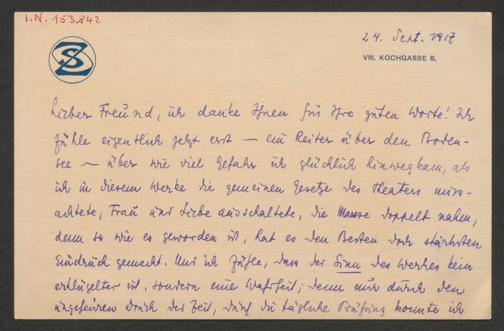 I.N. 153.842
24. Sept. 1917
SZ
VIII. KOCHGASSE 8.
Lieber Freund, ich danke Ihnen für Ihre guten Worte! Ich
fühle eigentlich jetzt erst – ein Reiter über den Boden-
see – über wie viel Gefahr ich glücklich hinwegkam, als
ich in diesem Werke die gemeinen Gesetze des Theaters miss-
achtete, Frau und Liebe ausschaltete, die Masse doppelt nahm,
denn so wie es geworden ist, hat es den Besten doch stärksten
Eindruck gemacht. Und ich fühle, dass der Sinn des Werkes kein
erklügelter ist, sondern eine Wahrheit; denn nur durch den
ungeheuren Druck der Zeit, durch die tägliche Prüfung konnte ich